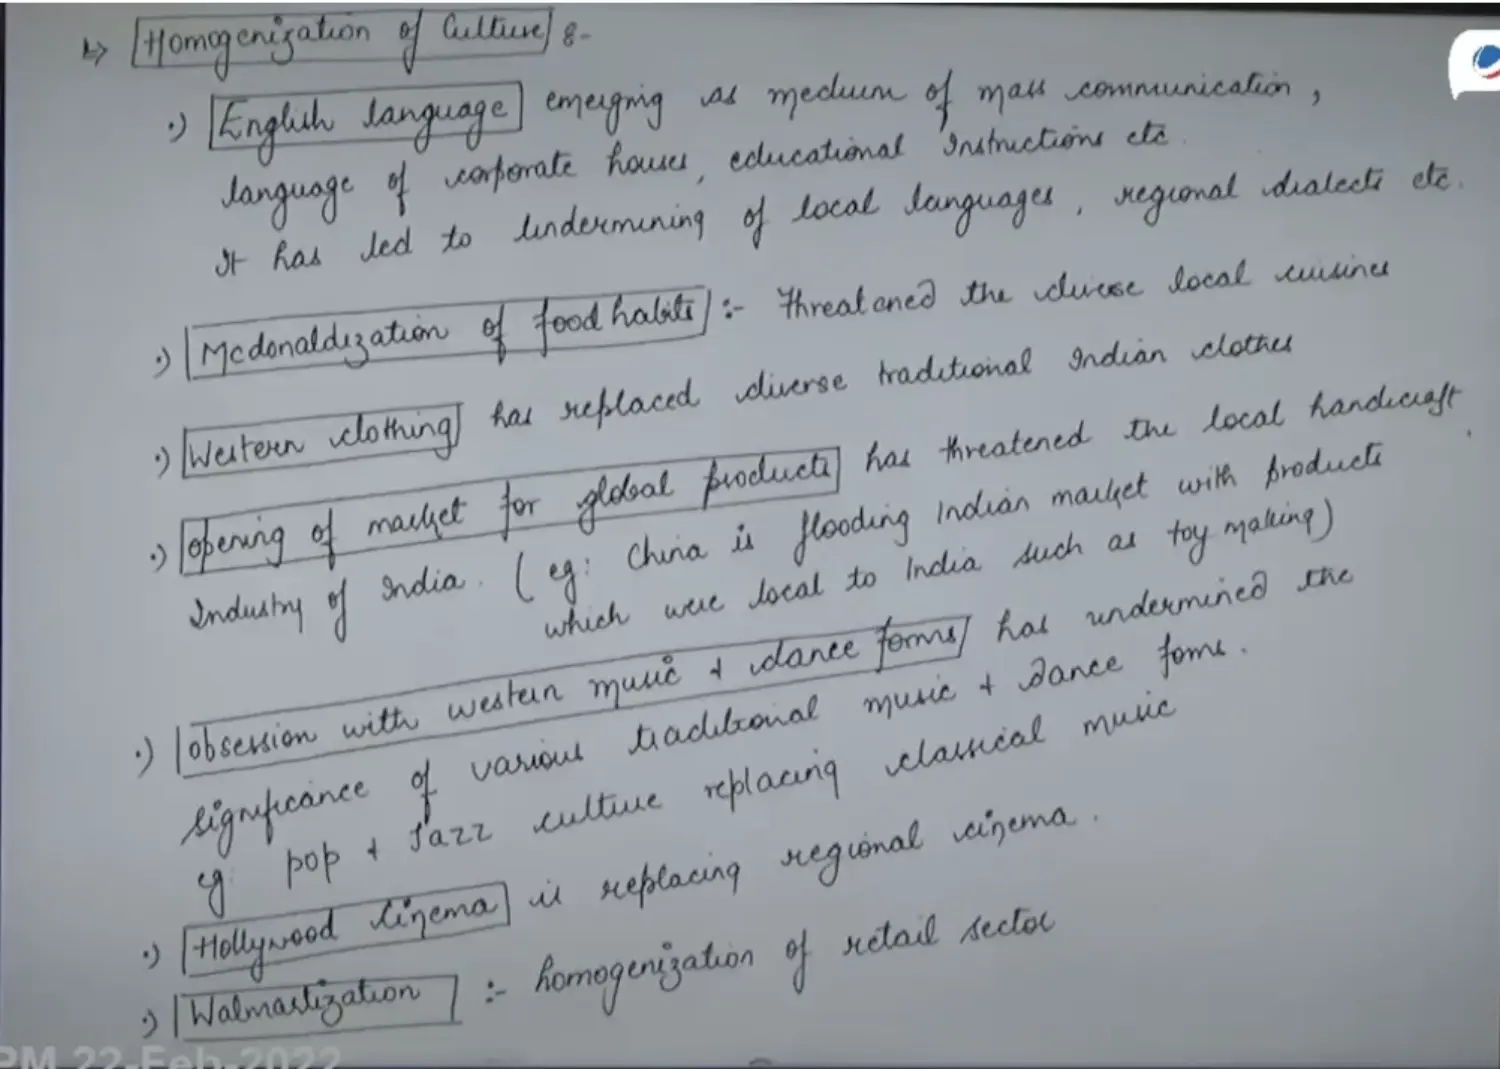 ↳ Homogenization of Culture :-
•) English language emerging as medium of mass communication,
language of corporate houses, educational Instructions etc.
It has led to undermining of local languages, regional dialects etc.
•) Mcdonaldization of food habits :- threatened the diverse local cuisines
•) Western clothing has replaced diverse traditional Indian clothes
•) opening of market for global products has threatened the local handicraft
Industry of India. (eg: China is flooding Indian market with products
which were local to India such as toy making)
•) obsession with western music + dance forms has undermined the
significance of various traditional music + dance forms.
eg: pop + Jazz culture replacing classical music
•) Hollywood cinema is replacing regional cinema.
•) Walmartization :- homogenization of retail sector
PM 22-Feb-2022